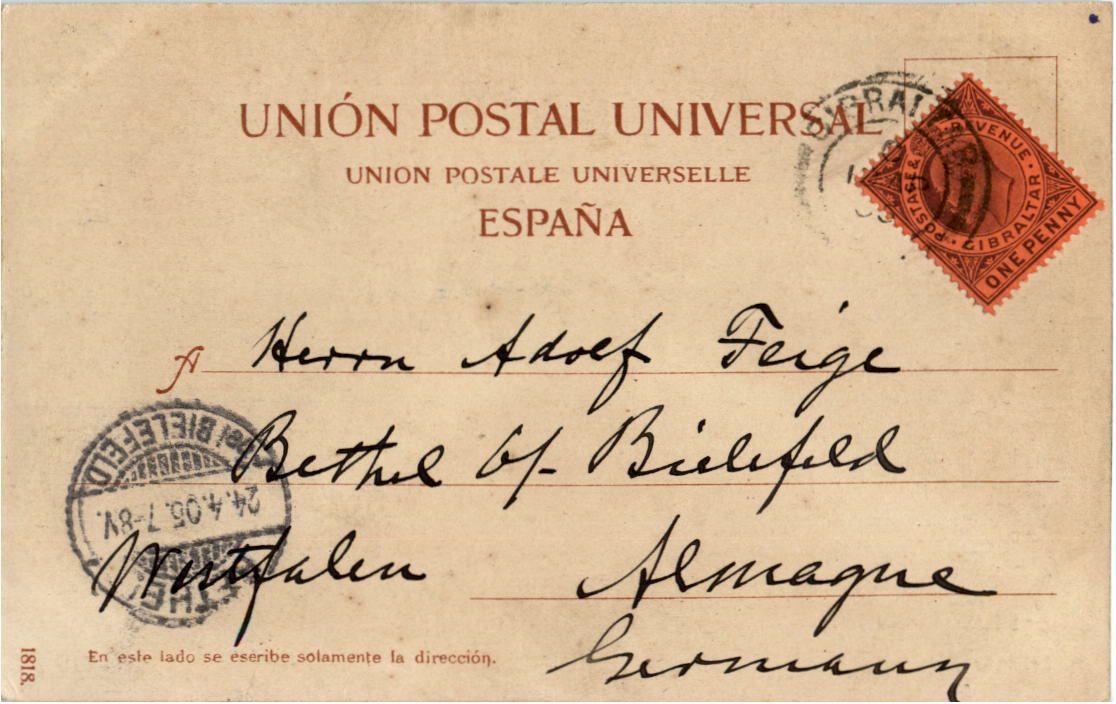 UNIÓN POSTAL UNIVERSAL
UNION POSTALE UNIVERSELLE
ESPAÑA
GIBRALTAR
POSTAGE & REVENUE
GIBRALTAR
ONE PENNY
A Herrn Adolf Feige
Bethel b/- Bielefeld
Westfalen Almagne
Germany
BETHEL
bei BIELEFELD
24.4.05.7-8V.
En este lado se eseribe solamente la dirección.
1818.